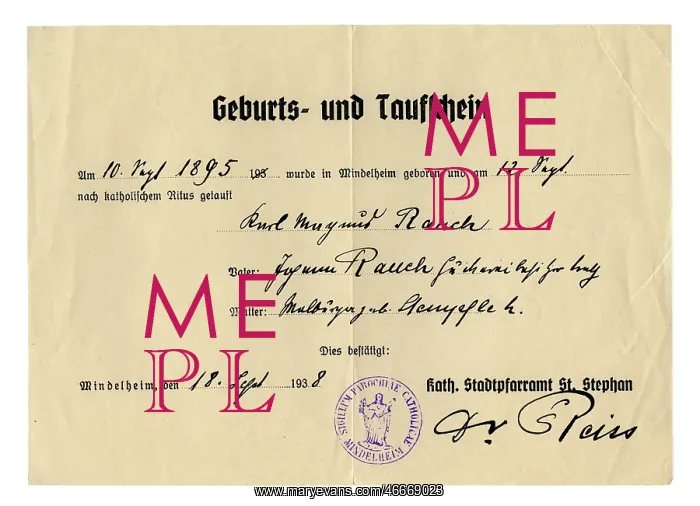 Geburts- und Taufschein
Am 10. Sept 1895 193 wurde in Mindelheim geboren und am 12. Sept.
nach katholischem Ritus getauft
Karl Magnus Rauch
Vater: Johann Rauch
Mutter: Walburga geb.
Dies bestätigt:
Mindelheim, den 18. Sept 1938
Kath. Stadtpfarramt St. Stephan
SIGILLUM PAROCHIAE CATHOLICAE
MINDELHEIM
Dr Reiss
ME
PL
ME
PL
www.maryevans.com/46669023